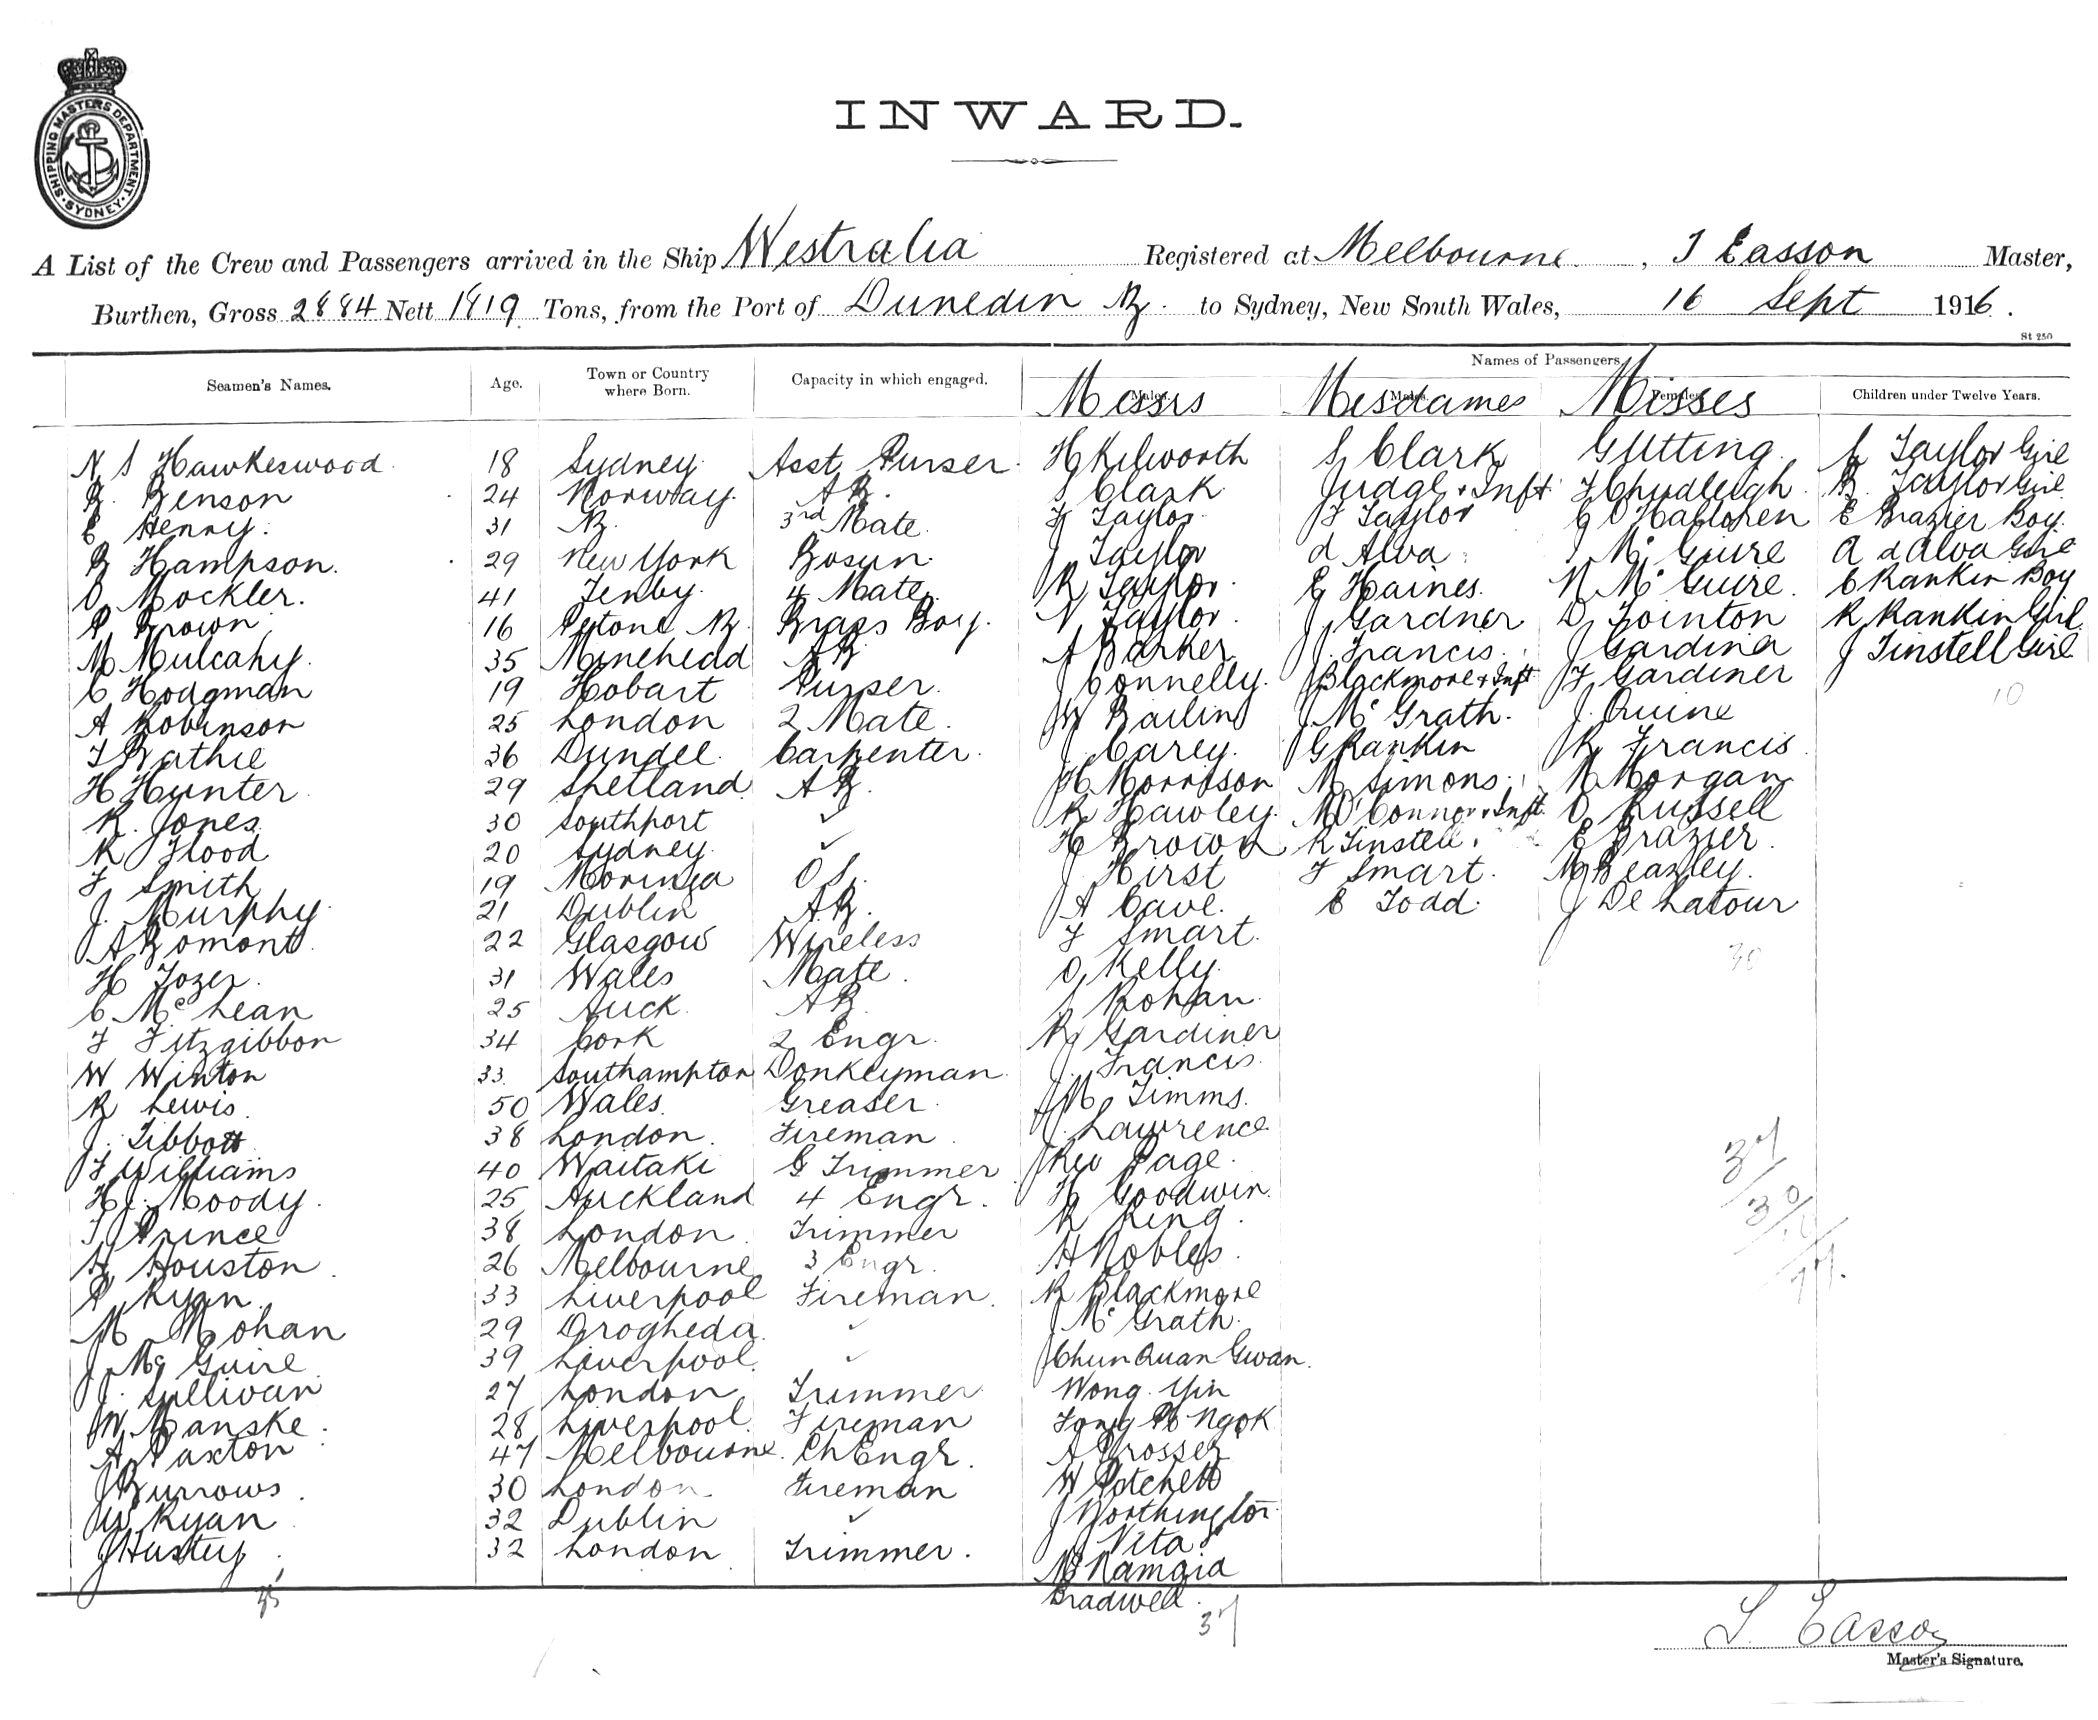 SHIPPING MASTERS DEPARTMENT SYDNEY
INWARD.
A List of the Crew and Passengers arrived in the Ship Westralia Registered at Melbourne, J Easson Master,
Burthen, Gross 2884 Nett 1819 Tons, from the Port of Dunedin NZ. to Sydney, New South Wales, 16 Sept 1916.
St 250
Names of Passengers
Seamen's Names. Age. Town or Country where Born. Capacity in which engaged. Messrs Mesdames Misses Children under Twelve Years.
N S Hawkeswood 18 Sydney Asst Purser H Kilworth S Clark G Utting Taylor Girl
B. Benson 24 Norway AB. S Clark Judge & Inft F Chudleigh B. Taylor Girl
E Henry. 31 NZ. 3rd Mate F Taylor F Taylor G O'Halloren E Brazier Boy.
B Hampson. 29 New York Bosun. J Taylor d Alva McGuire A d Alva Girl
O Mockler. 41 Tenby. 4 Mate R Taylor. E Haines. N McGuire. C Rankin Boy
P Brown 16 Petone NZ Brass Boy. N Taylor. J Gardner D Tointon R Rankin Girl
M Mulcahy. 35 Minehead AB A Barker J. Francis. J Gardiner J Tinstell Girl
C Hodgman 19 Hobart Purser. J Connelly. J Blackmore & Inft F Gardiner
10
A Robinson 25 London 2 Mate. W Bailin J McGrath. J. Quine
T Bathie 36 Dundee. Carpenter. J Carey. G Rankin R Francis
H Hunter 29 Shetland AB. H Morrison M Simons. N Morgan
R. Jones 30 Southport ✓ R Hawley. M O'Connor & Inft. O Russell
R Flood 20 Sydney ✓ H Brown R Tinstell. E Brazier.
F Smith 19 Moringa O.S. J Hirst F Smart. M Beazley.
J. Murphy. 21 Dublin A.B. A Cave. E Todd. J De Latour
A Bomont 22 Glasgow Wireless F Smart.
H Tozer. 31 Wales Mate. O Kelly.
30
C McLean 25 Auck. AB J Rohan.
F Fitzgibbon 34 Cork 2 Engr. R Gardiner
W Winton 33. Southampton Donkeyman J. Francis.
R Lewis. 50 Wales. Greaser. J M Timms.
J. Tibbott 38 London. Fireman. J. Lawrence
F Williams 40 Waitaki G Trimmer Rev Page.
H J. Moody. 25 Auckland 4 Engr. H Goodwin.
J Prince 38 London. Trimmer R King.
H Houston. 26 Melbourne 3 Engr. A Nobles.
P Ryan 33 Liverpool Fireman. R Blackmore
M Mohan 29 Drogheda. ✓ J McGrath.
J McGuire 39 Liverpool. ✓ Chun Quan Gwan.
J. Sullivan 27 London Trimmer Wong Yin
W Manske. 28 Liverpool Fireman Ngok
A Paxton 47 Melbourne. Ch Engr. A Prosser
J Burrows. 30 London Fireman W Potchett
W Ryan 32 Dublin ✓ J Worthington
J Hustey. 32 London Trimmer. J Vita
N Namgia
Bradwell.
35
37
37
30
10
77.
J. Easson
Master's Signature.